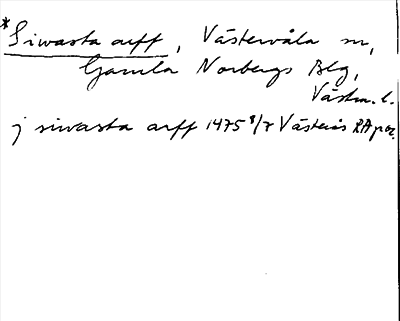 *Siwasta arff, Västervåla sn,
Gamla Norbergs Blg,
Västm. l.
j siwasta arff 1475 8/7 Västerås RA perg.